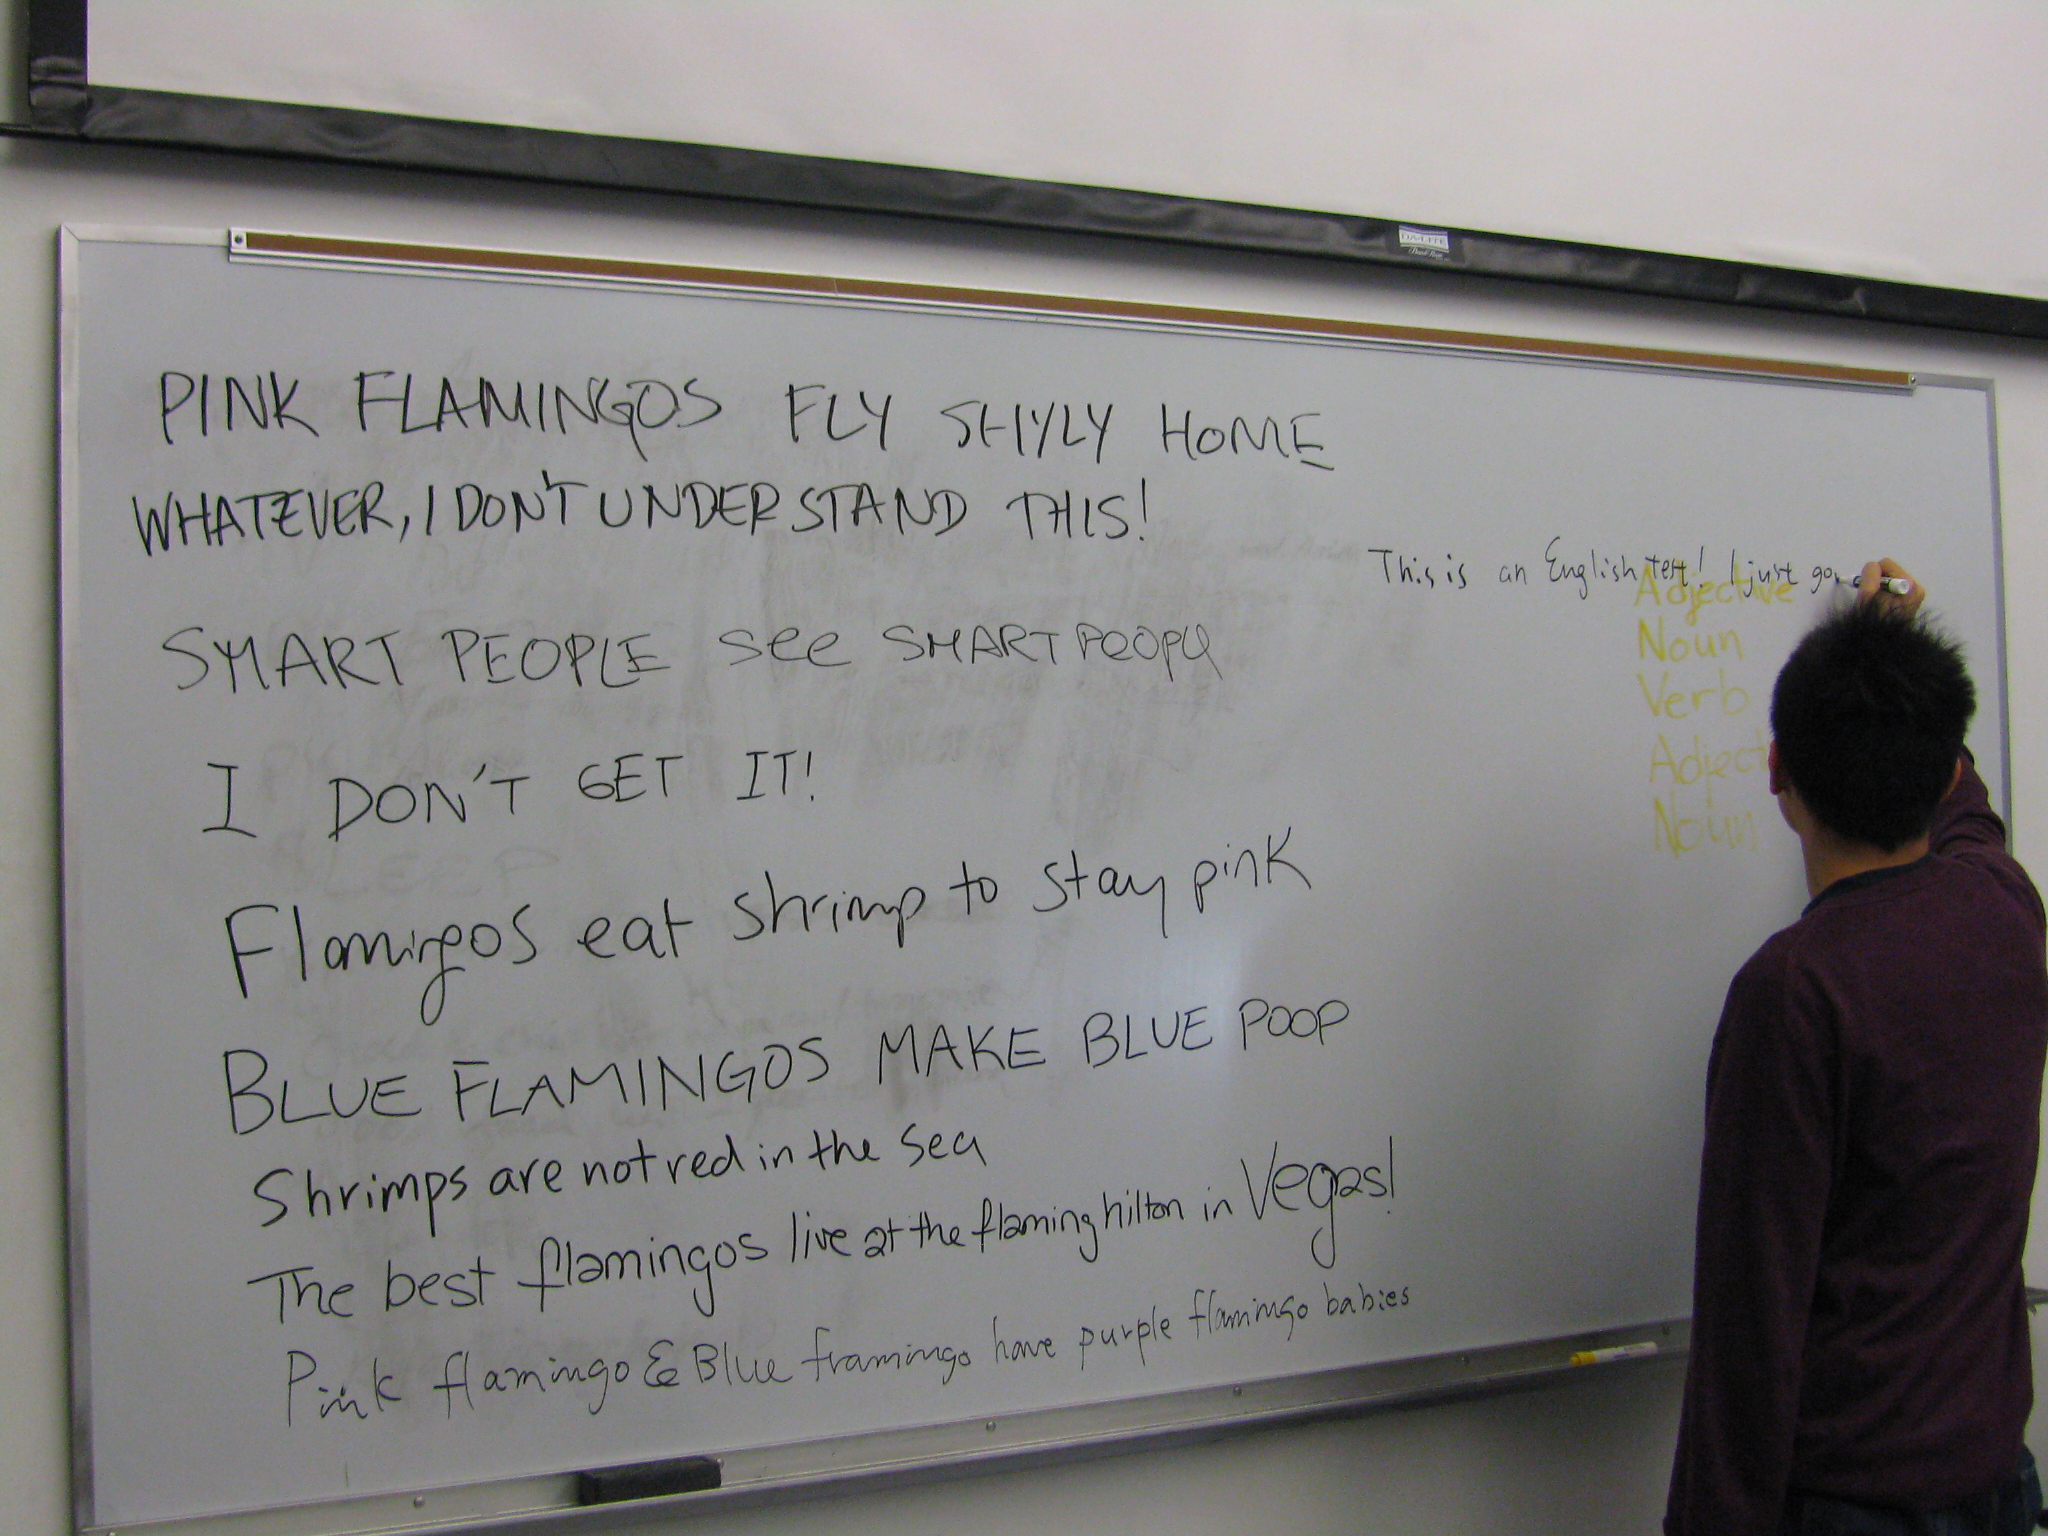 DA-LITE
PINK FLAMINGOS FLY SHYLY HOME
WHATEVER, I DON'T UNDERSTAND THIS!
SMART PEOPLE see SMART PEOPLE
I DON'T GET IT!
Flamingos eat shrimp to stay pink
BLUE FLAMINGOS MAKE BLUE POOP
Shrimps are not red in the sea
The best flamingos live at the flaming hilton in Vegas!
Pink flamingo & Blue framingo have purple flamingo babies
This is an English test! I just go
Adjective
Noun
Verb
Adject
Noun